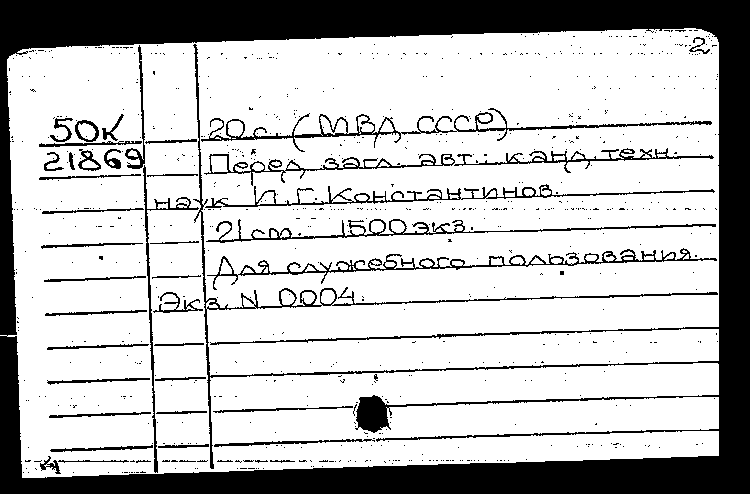 2
50к 20 с. (МВД СССР).
21869 Перед загл. авт.: канд. техн.
наук И.Г. Константинов.
21 cm. 1500 экз.
Для служебного пользования.
Экз. N 0004.